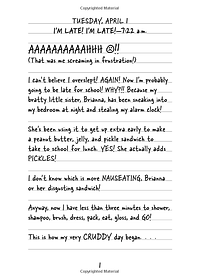 TUESDAY, APRIL 1
I'M LATE! I'M LATE!—7:22 a.m.
AAAAAAAAAAHHH ☹!!
(That was me screaming in frustration!)
I can't believe I overslept! AGAIN! Now I'm probably
going to be late for school! WHY?!! Because my
bratty little sister, Brianna, has been sneaking into
my bedroom at night and stealing my alarm clock!
She's been using it to get up extra early to make
a peanut butter, jelly, and pickle sandwich to
take to school for lunch. YES! She actually adds
PICKLES!
I don't know which is more NAUSEATING, Brianna
or her disgusting sandwich!
Anyway, now I have less than three minutes to shower,
shampoo, brush, dress, pack, eat, gloss, and GO!
This is how my very CRUDDY day began. . . .
1